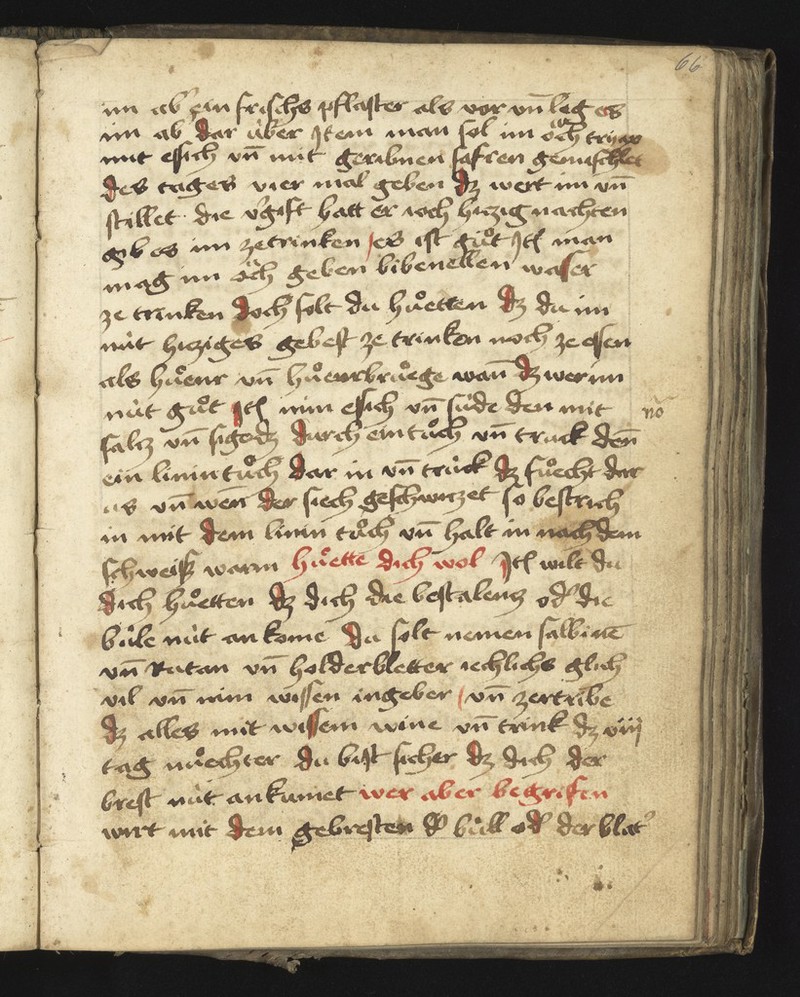 66
im ab ein frischs pflaster als vor vn̄ leg es
im ab dar ůber Item man sol im öch triax
mit essich vn̄ mit geribnen safren gemischlet
des tages vier mal geben dz wert im vn̄
stillet die v'gift hatt er ioch hizig nachten
gib es im ze trinken es ist gůt Itē man
mag im öch geben bibenellen waser
ze trinken doch solt du hůetten dz du im
nüt hiziges gebest ze trinken noch ze essen
als hůenr vn̄ hůenrbrůege wan̄ dz wer im
nüt gůt Itē nim essich vn̄ süde den mit
salcz vn̄ sige dz durch ein tůch vn̄ truck den̄
ein linin tůch dar in vn̄ trück dz fůecht dar
us vn̄ wen der siech geschwizet so bestrich
in mit dem linin tůch vn̄ halt in nach dem
schweiß warm hůette dich wol Itē wilt du
dich hůetten dz dich die bestalenz od' die
büle nüt an kome du solt nemen salbinē
vn̄ Rutan vn̄ holderbletter iechlichs glich
vil vn̄ nim wissen ingeber vn̄ zertribe
dz alles mit wissem wine vn̄ trink dz viiij
tag nůechter du bist sicher dz dich der
brest nüt an kumet wer aber begrifen
wirt mit dem gebresten d' büll od' der blat'
no̅